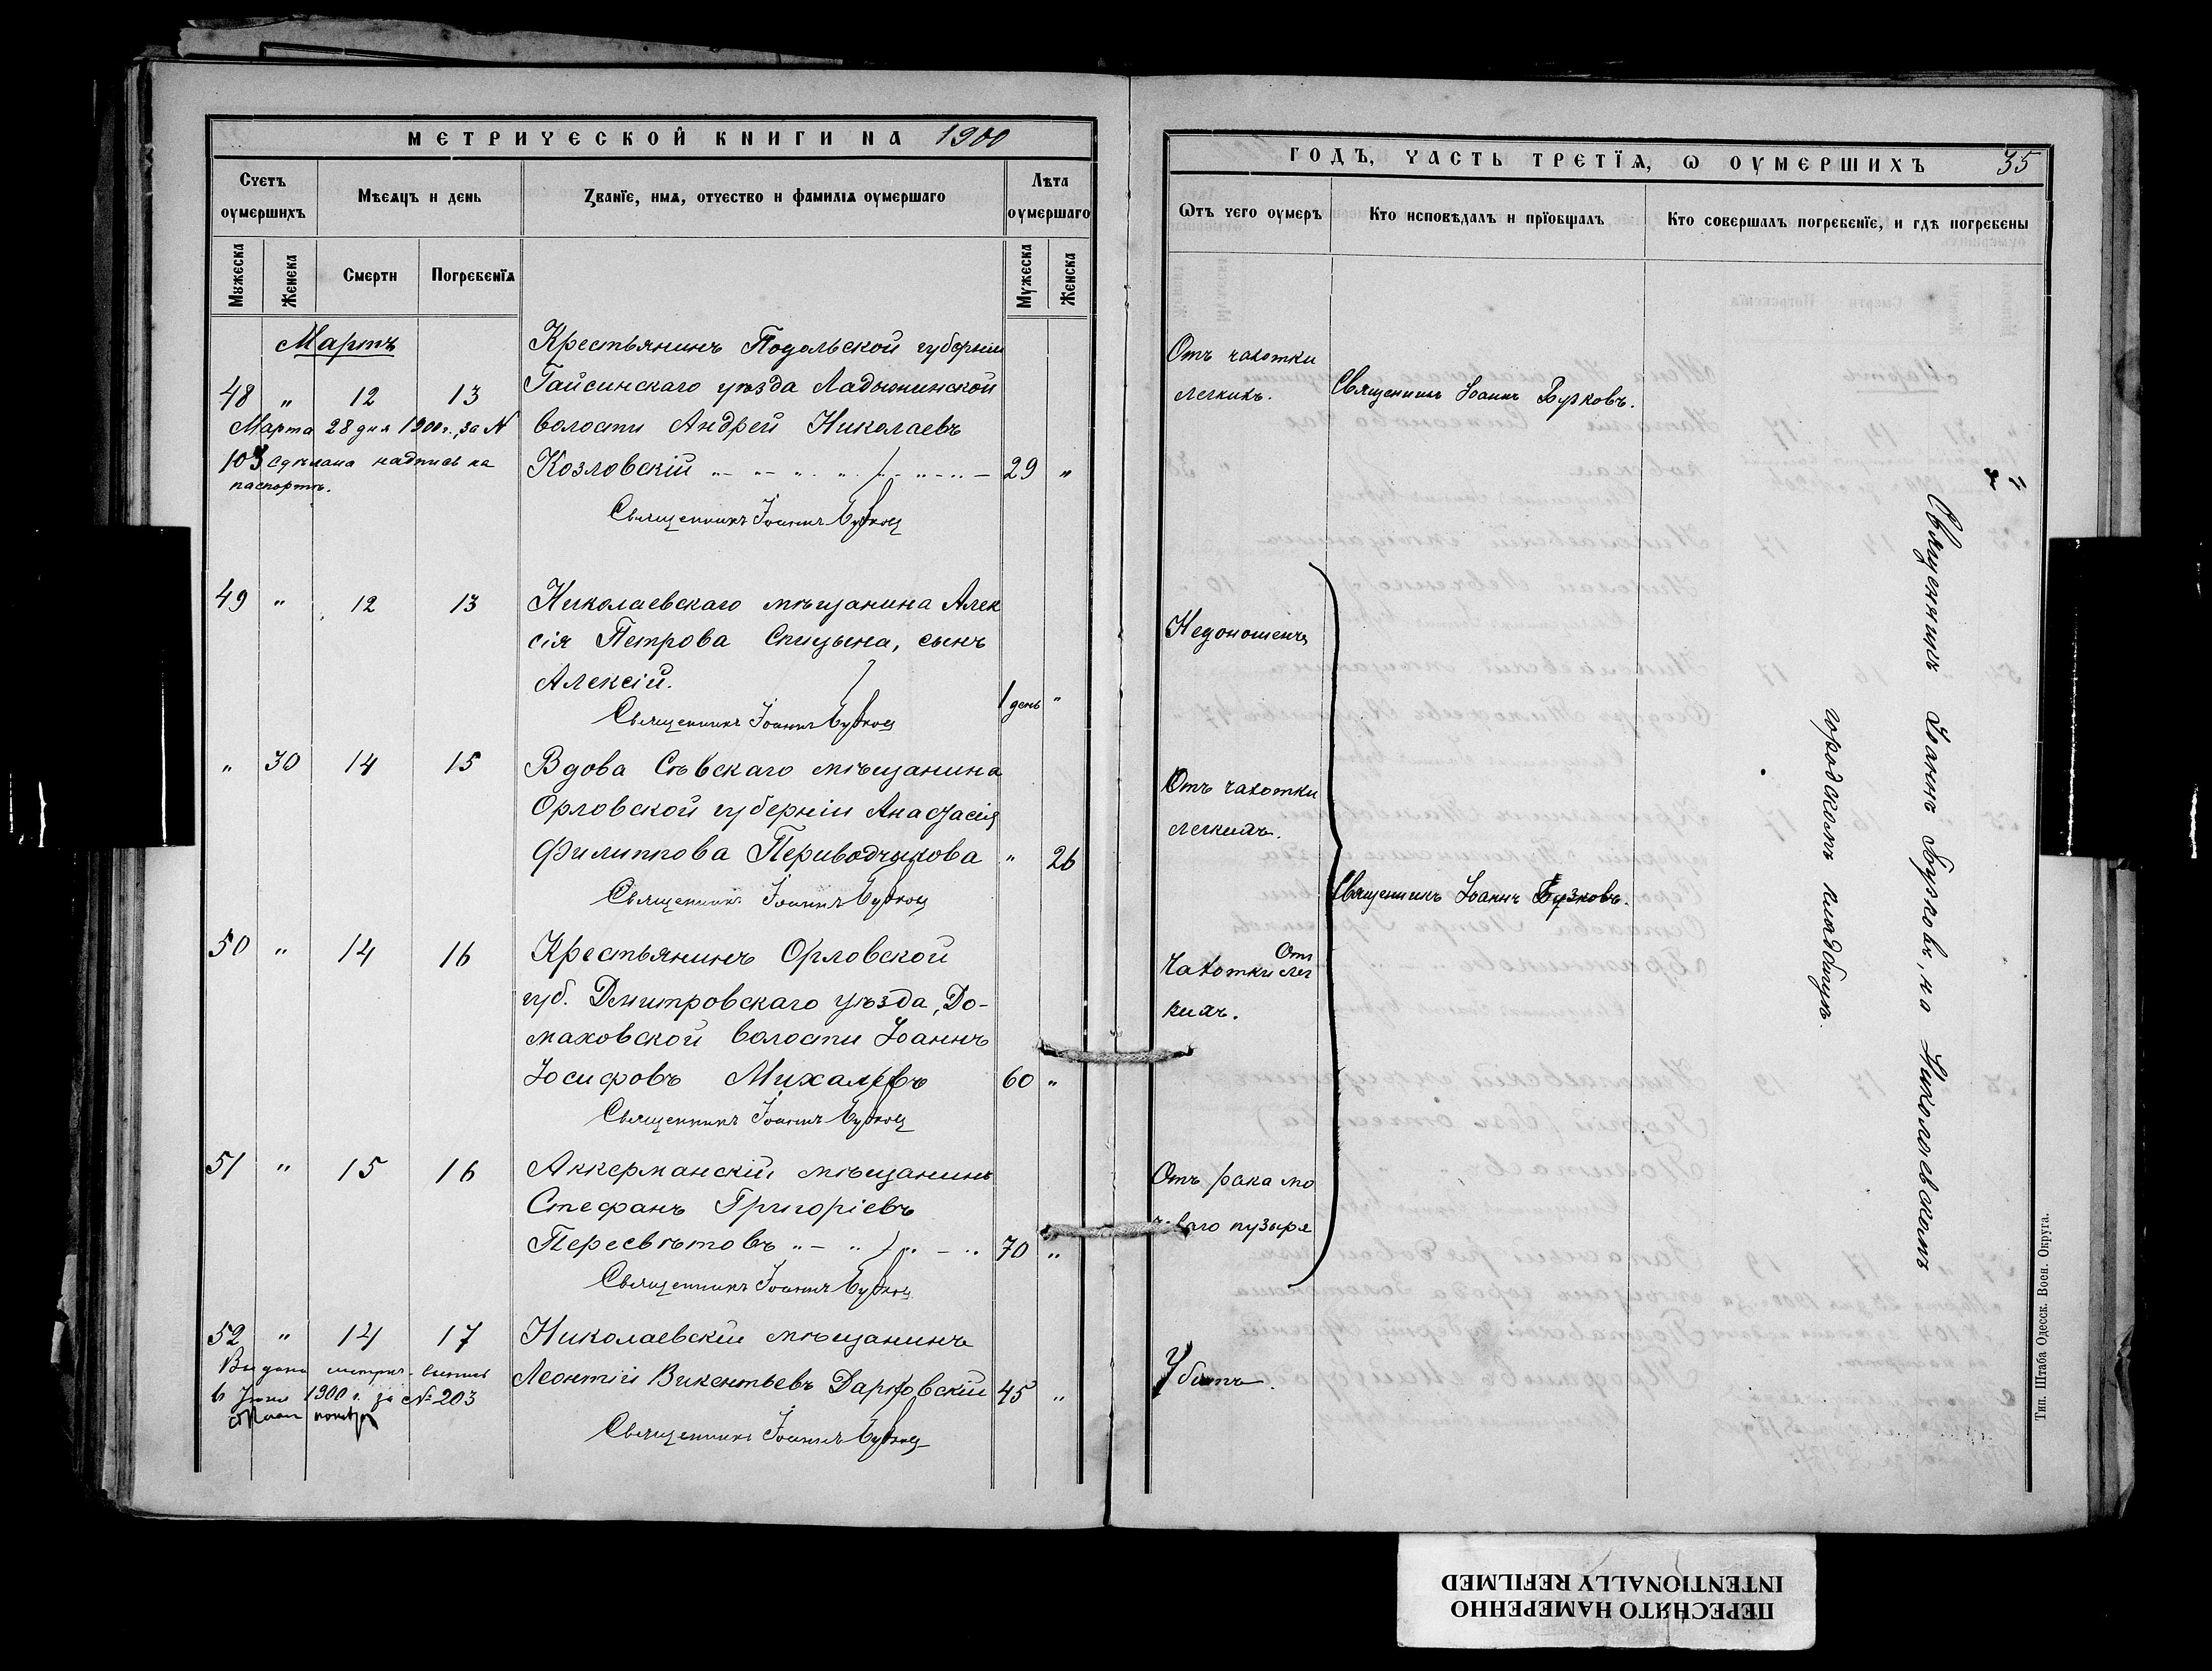 МЕТРИЧЕСКОЙ КНИГИ НА 1900
Счетъ оумершихъ
Мѣсяцъ и день
Званїе, имя, отчество и фамилїя оумершаго
Лѣта оумершаго
Мужеска
Женска
Смерти
Погребенїя
Мужеска
Женска
Мартъ
48 " 12 13
Марта 28 дня 1900 г., за N
103 сдѣлана надпись на
паспортѣ.
Крестьянинъ Подольской губерніи
Гайсинскаго уѣзда Ладыжинской
волости Андрей Николаевъ
Козловскій 29 "
Священникъ Іоаннъ Бурковъ
49 " 12 13
Николаевскаго мѣщанина Алек
сія Петрова Спицына, сынъ
Алексій. 1 день "
Священникъ Іоаннъ Бурковъ
" 30 14 15
Вдова Сѣвскаго мѣщанина
Орловской губерніи Анастасія
Филиппова Периводчикова " 26
Священникъ Іоаннъ Бурковъ
50 " 14 16
Крестьянинъ Орловской
губ. Дмитровскаго уѣзда, До-
маховской волости Іоаннъ
Іосифовъ Михалевъ 60 "
Священникъ Іоаннъ Бурковъ
51 " 15 16
Аккерманскій мѣщанинъ
Стефанъ Григоріевъ
Пересвѣтовъ 70 "
Священникъ Іоаннъ Бурковъ
52 " 14 17
Выдана метрич. выпись
6 1900 г. за № 203
Николаевскій мѣщанинъ
Леонтій Викентьевъ Дарковскій 45 "
Священникъ Іоаннъ Бурковъ
ГОДЪ, ЧАСТЬ ТРЕТЇЯ, Ѡ ОУМЕРШИХЪ 35
Ѿтъ чего оумеръ
Кто исповѣдалъ и прїобщалъ
Кто совершалъ погребенїе, и гдѣ погребены
Отъ чахотки
легкихъ.
Священникъ Іоаннъ Бурковъ.
Недоношенъ
Отъ чахотки
легкихъ.
Священникъ Іоаннъ Бурковъ.
Отъ
чахотки лег
кихъ.
Отъ рака мо
чеваго пузыря
Убитъ.
Священникъ Іоаннъ Бурковъ, на Николаевскомъ
городскомъ кладбищѣ.
Тип. Штаба Одесск. Воен. Округа.
ПЕРЕСНЯТО НАМЕРЕННО
INTENTIONALLY REFILMED